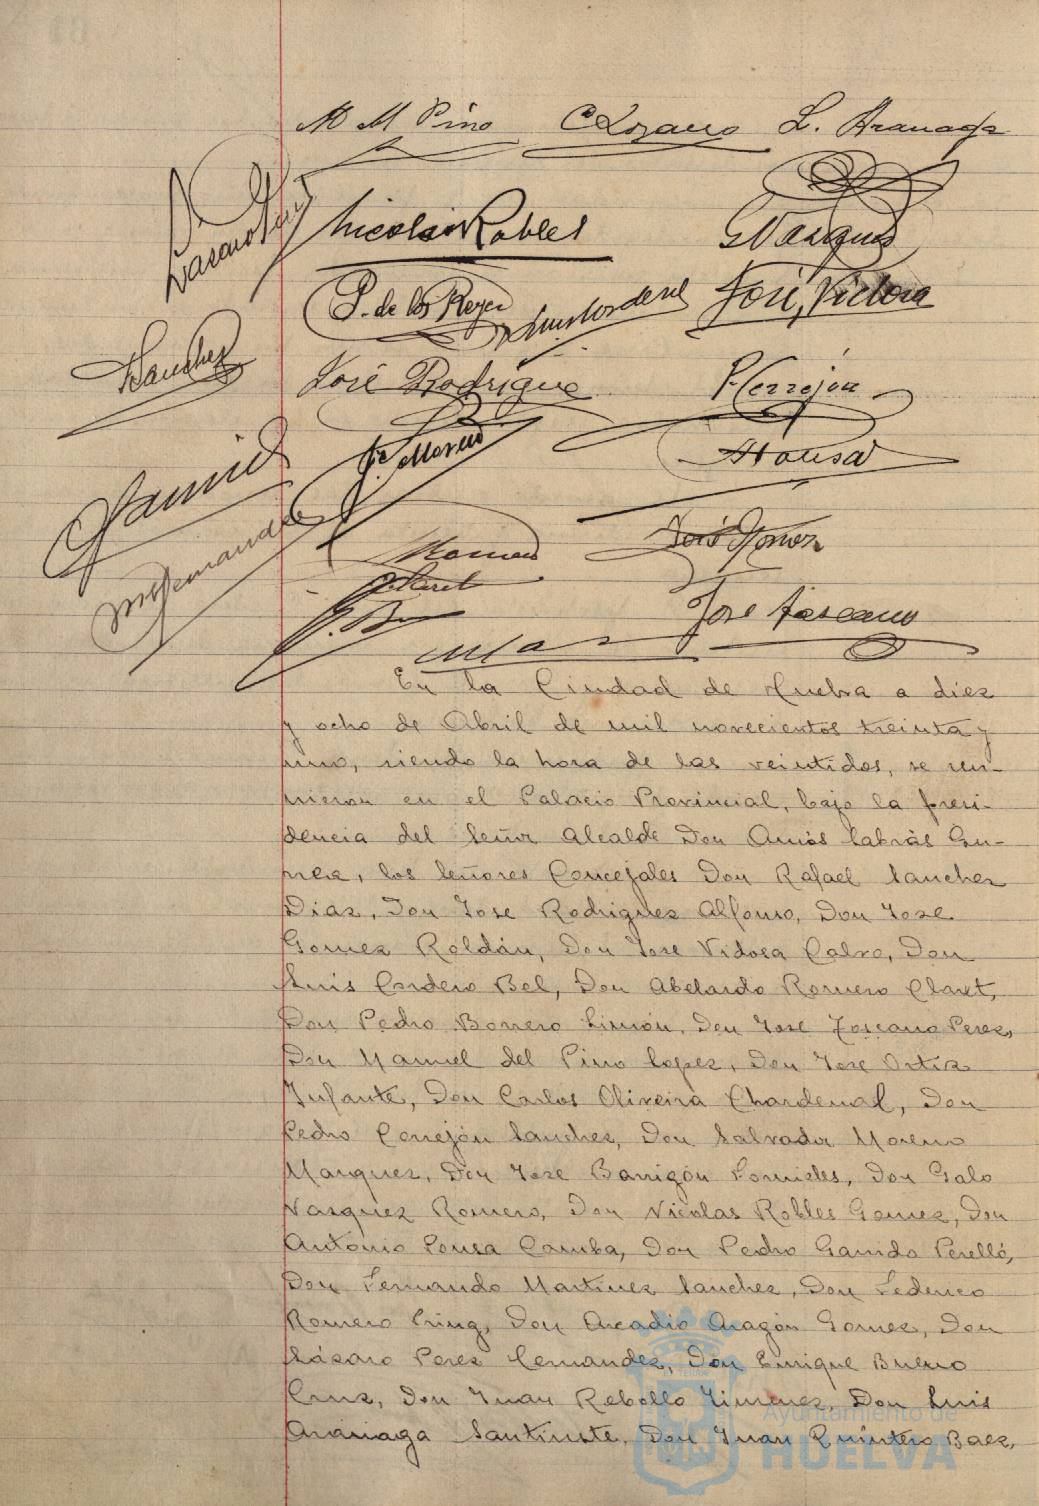 M M Pino C Lozano L. Aranaga
Lazaro Perez
Nicolas Robles G Vazquez
P. de los Reyes Luis Cordero Bel José Vidosa
Sanchez José Rodriguez P. Cerrejón
Garrido Moreno A Pousa
M Fernandez Romero José Gomez
Claret
P. B. José Toscano
En la Ciudad de Huelva a diez
y ocho de Abril de mil novecientos treinta y
uno, siendo la hora de las veintidos, se reu-
nieron en el Palacio Provincial, bajo la presi-
dencia del Señor Alcalde Don Amós Sabrás Gu-
rrea, los Señores Concejales Don Rafael Sanchez
Diaz, Don Jose Rodriguez Alfonso, Don Jose
Gomez Roldán, Don Jose Vidosa Calvo, Don
Luis Cordero Bel, Don Abelardo Romero Claret,
Don Pedro Borrero Limón, Don Jose Toscano Perez,
Don Manuel del Pino Lopez, Don Jose Ortiz
Infante, Don Carlos Oliveira Chardenal, Don
Pedro Cerrejón Sanchez, Don Salvador Moreno
Marquez, Don Jose Barrigón Fornieles, Don Galo
Vazquez Romero, Don Nicolas Robles Gomez, Don
Antonio Pousa Camba, Don Pedro Garrido Perelló,
Don Fernando Martinez Sanchez, Don Federico
Romero, Don Arcadio Aragón Gomez, Don
Lázaro Perez Hernandez, Don Enrique Bueno
Cruz, Don Juan Rebollo Jimenez, Don Luis
Aranaga Santiuste, Don Juan Quintero Baez,
Ayuntamiento de
HUELVA